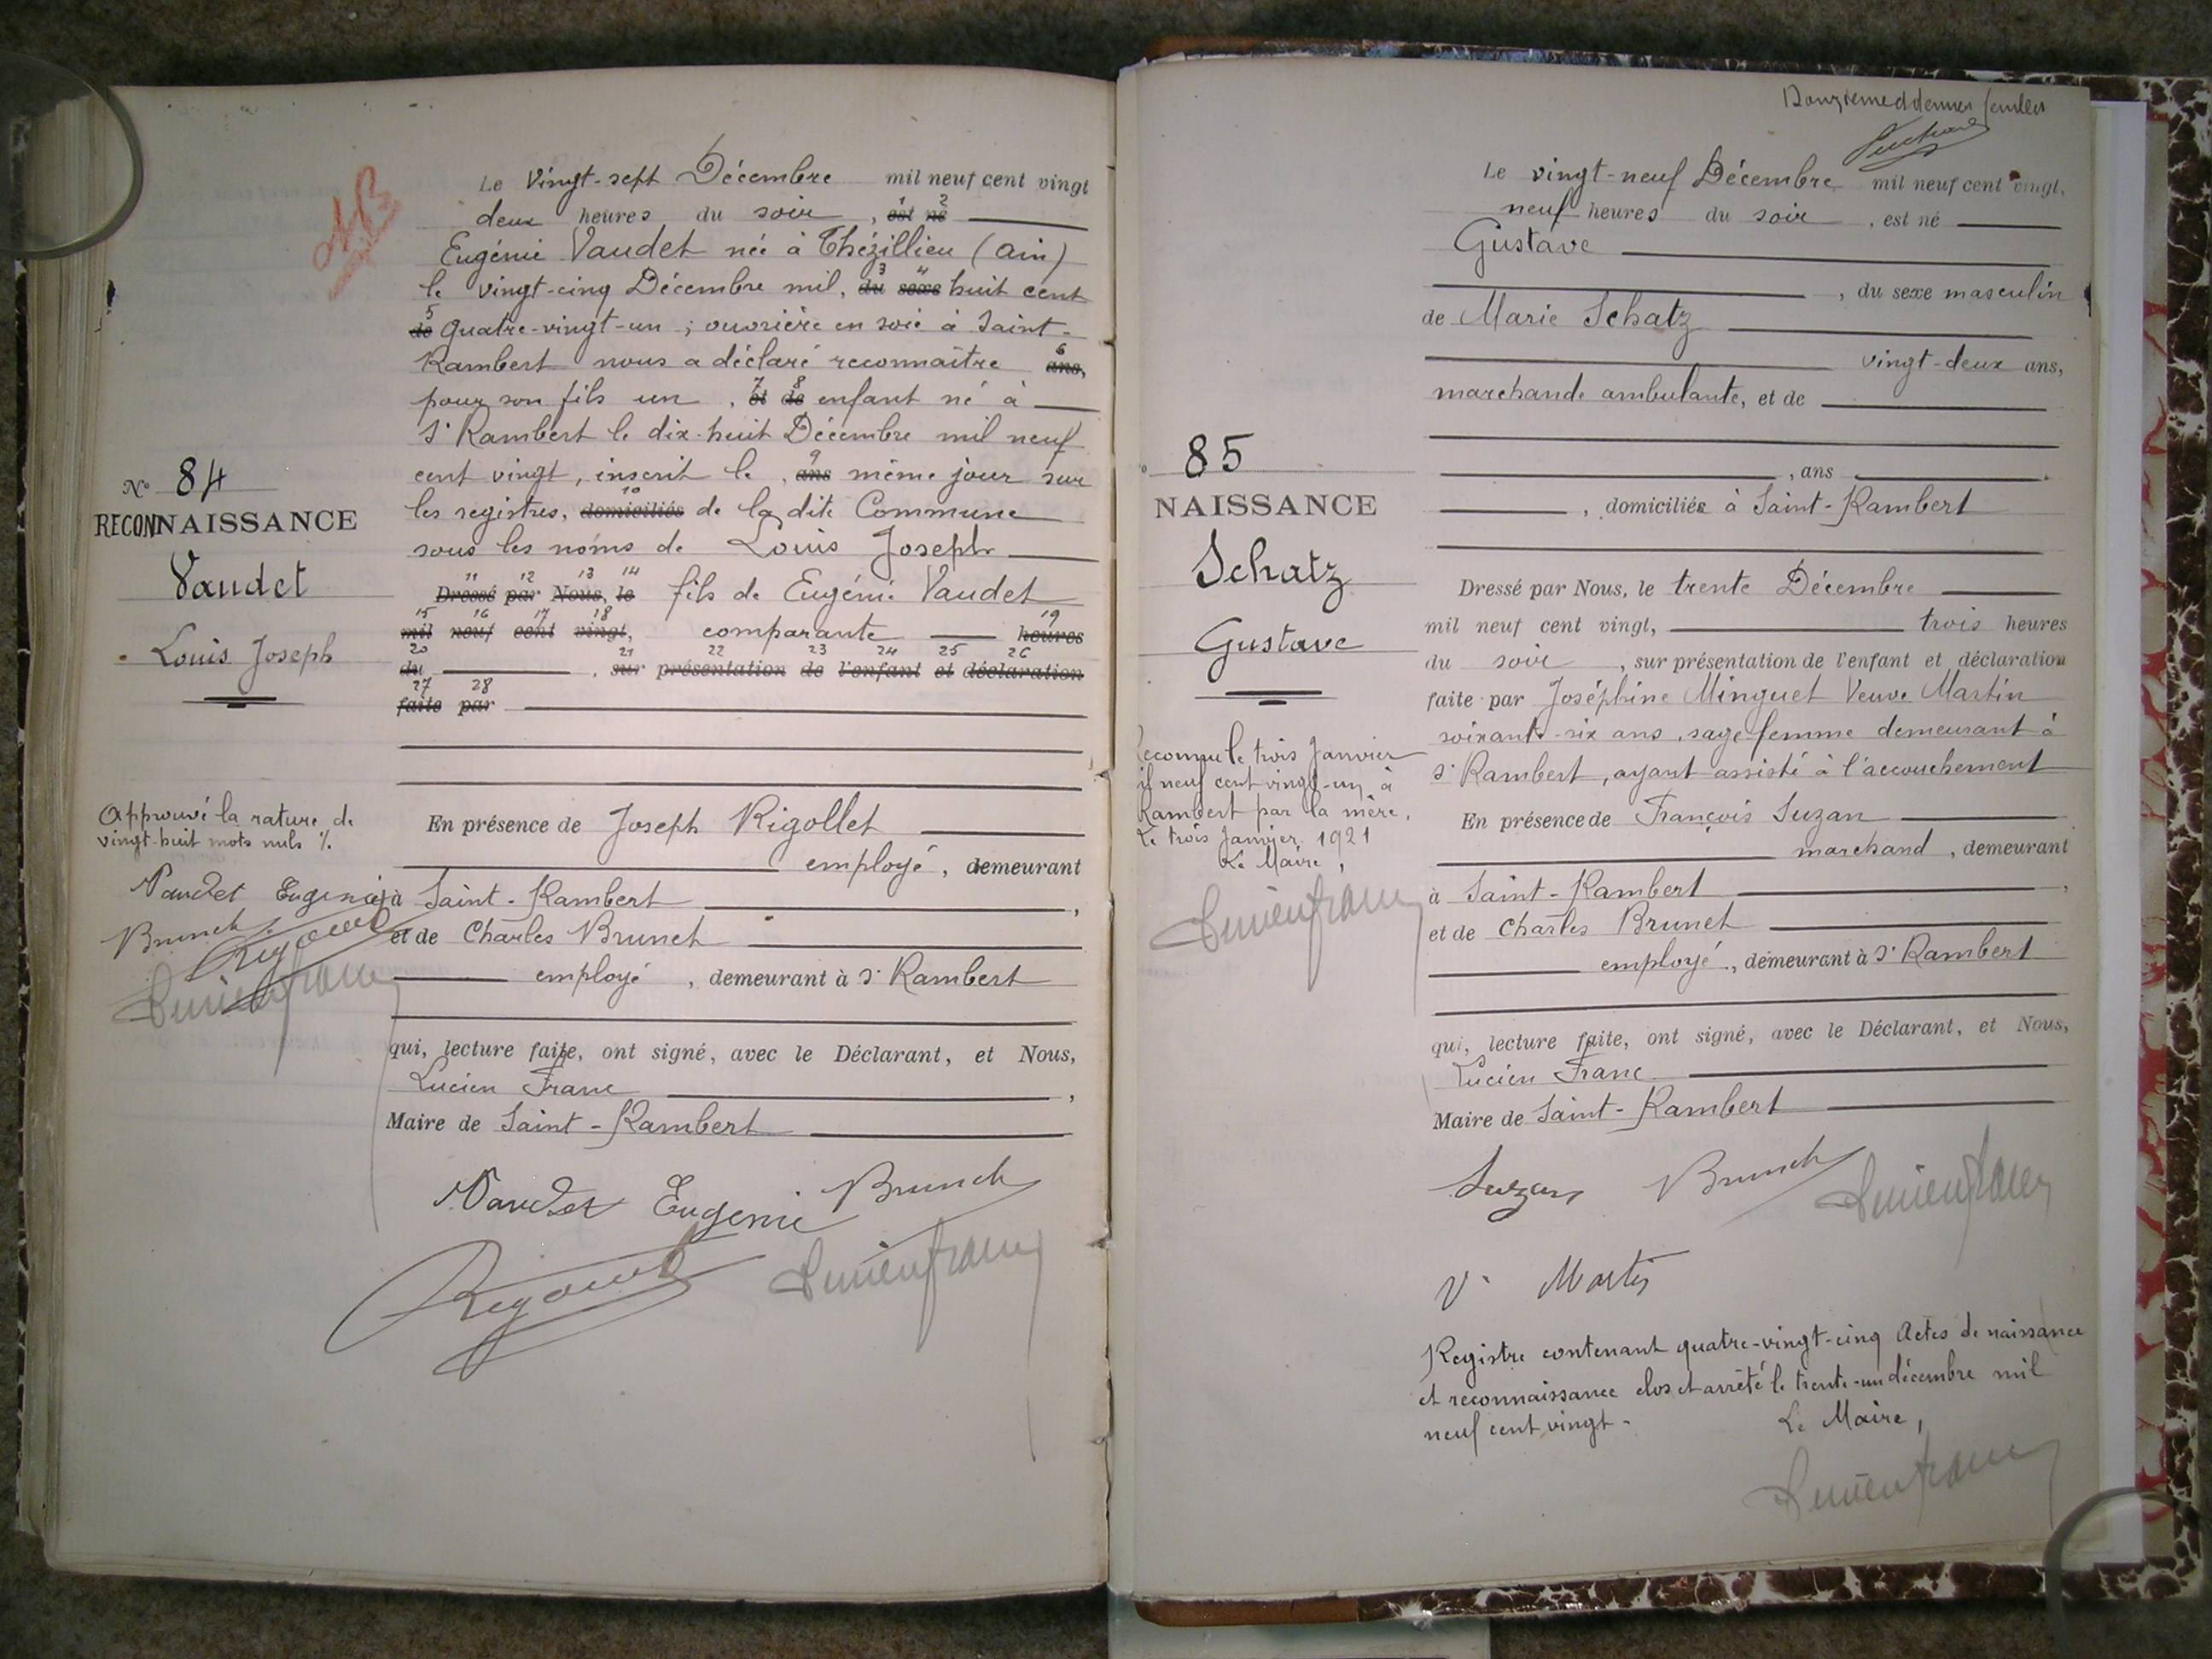 Le Vingt-sept Décembre mil neuf cent vingt
deux heures du soir, est né
Eugénie Vaudet née à Thézillieu (Ain)
le vingt-cinq Décembre mil, du sexe huit cent
de quatre-vingt-un ; ouvrière en soie à Saint-
Rambert nous a déclaré reconnaître ans,
pour son fils un, et de enfant né à
St Rambert le dix-huit Décembre mil neuf
cent vingt, inscrit le, ans même jour sur
les registres, domiciliés de la dite Commune
sous les noms de Louis Joseph
Dressé par Nous, le fils de Eugénie Vaudet
mil neuf cent vingt, comparante heures
du , sur présentation de l'enfant et déclaration
faite par
En présence de Joseph Rigollet
employé, demeurant
à Saint-Rambert ,
et de Charles Brunet
employé, demeurant à St Rambert
qui, lecture faite, ont signé, avec le Déclarant, et Nous,
Lucien Franc ,
Maire de Saint-Rambert
Vaudet Eugenie Brunet
Lucien Franc
No 84
RECONNAISSANCE
Vaudet
Louis Joseph
Approuvé la rature de
vingt-huit mots nuls
Vaudet Eugenie
Brunet
Lucien Franc
Le vingt-neuf Décembre mil neuf cent vingt,
neuf heures du soir, est né
Gustave
, du sexe masculin
de Marie Schatz
vingt-deux ans,
marchande ambulante, et de
, ans
, domiciliée à Saint-Rambert
Dressé par Nous, le trente Décembre
mil neuf cent vingt, trois heures
du soir, sur présentation de l'enfant et déclaration
faite par Joséphine Minguet Veuve Martin
soixante-six ans, sage-femme demeurant à
St Rambert, ayant assisté à l'accouchement
En présence de François Suzan
marchand, demeurant
à Saint-Rambert ,
et de Charles Brunet
employé, demeurant à St Rambert
qui, lecture faite, ont signé, avec le Déclarant, et Nous,
Lucien Franc
Maire de Saint-Rambert
Suzan Brunet Lucien Franc
Ve Martin
Registre contenant quatre-vingt-cinq Actes de naissance
et reconnaissance clos et arrêté le trente-un décembre mil
neuf cent vingt - Le Maire,
Lucien Franc
85
NAISSANCE
Schatz
Gustave
Reconnu le trois Janvier
il neuf cent vingt-un, à
Rambert par la mère.
Le trois Janvier 1921
Le Maire,
Lucien Franc